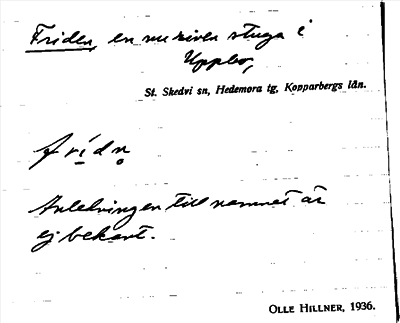 Friden, en nu riven stuga i
Uppbo,
St. Skedvi sn, Hedemora tg, Kopparbergs län.
fri̱dn̥
Anledningen till namnet är
ej bekant.
OLLE HILLNER, 1936.